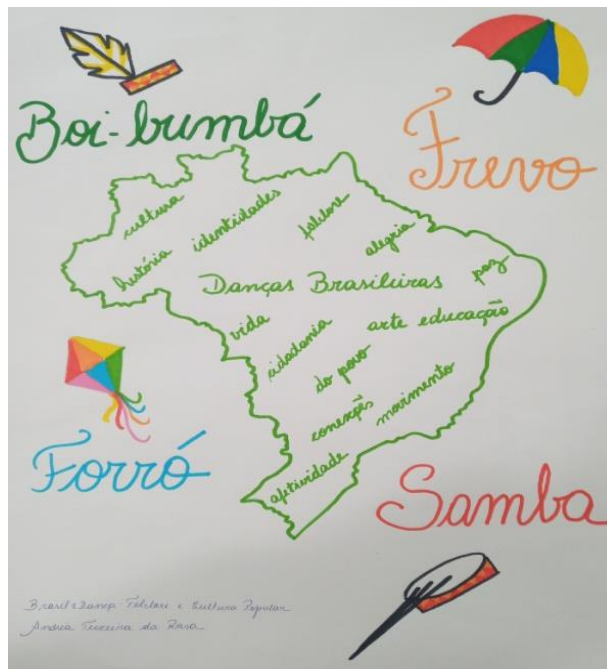 Boi-bumbá
Frevo
cultura
identidades
folclore
alegria
história
Danças Brasileiras
paz
vida
cidadania
arte educação
do povo
conexões
movimento
afetividade
Forró
Samba
Brasil e Dança Folclore e Cultura Popular
Andrea Teixeira da Rosa